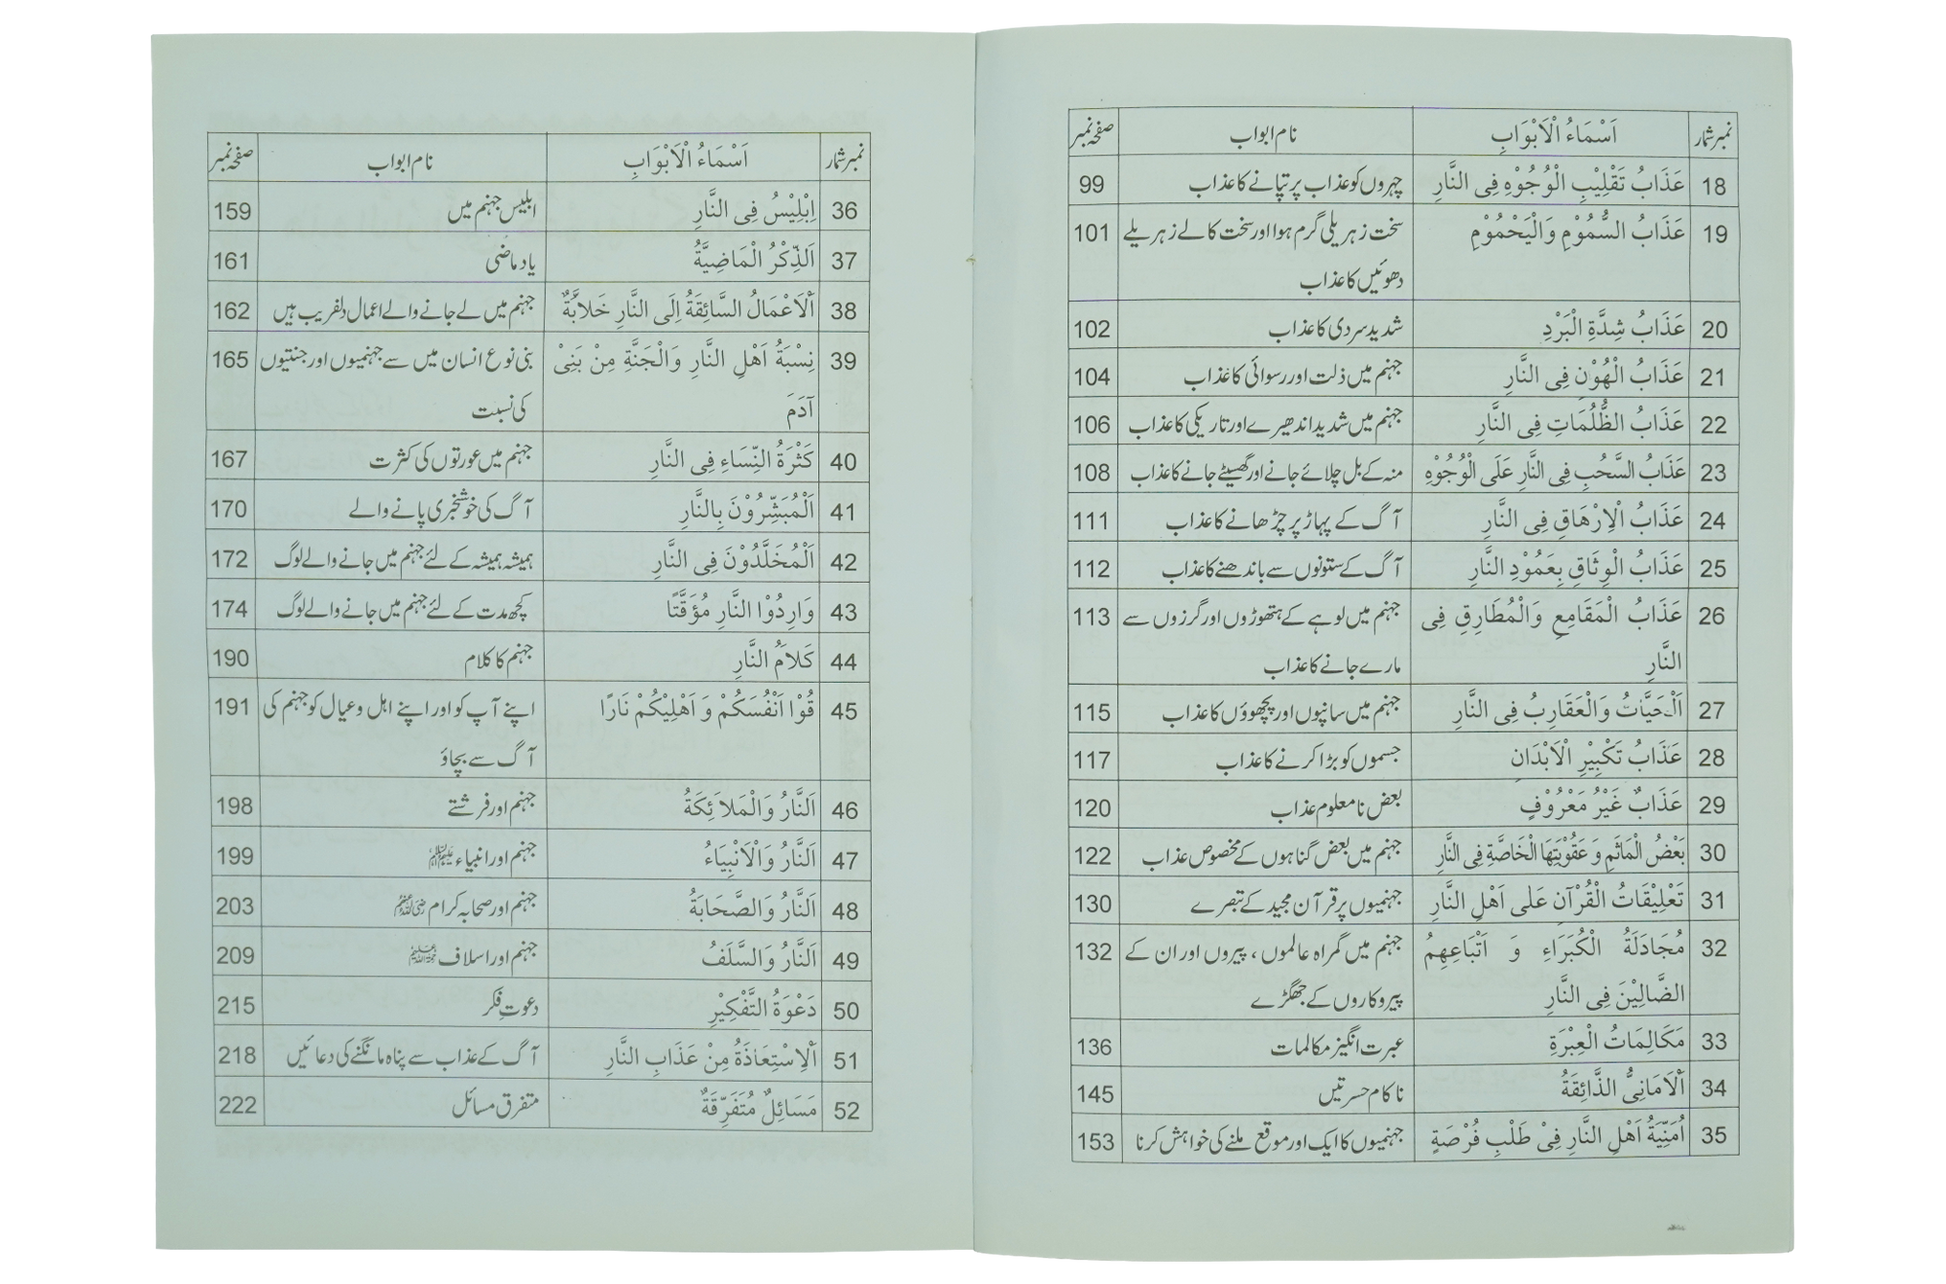 نمبر شمار | اَسْمَاءُ الْاَبْوَابِ | نام ابواب | صفحہ نمبر
18 | عَذَابُ تَقْلِیْبِ الْوُجُوْهِ فِی النَّارِ | چہروں کو عذاب پر تپانے کا عذاب | 99
19 | عَذَابُ السُّمُوْمِ وَالْیَحْمُوْمِ | سخت زہریلی گرم ہوا اور سخت کالے زہریلے | 101
دھوئیں کا عذاب
20 | عَذَابُ شِدَّةِ الْبَرْدِ | شدید سردی کا عذاب | 102
21 | عَذَابُ الْهُوْنِ فِی النَّارِ | جہنم میں ذلت اور رسوائی کا عذاب | 104
22 | عَذَابُ الظُّلُمَاتِ فِی النَّارِ | جہنم میں شدید اندھیرے اور تاریکی کا عذاب | 106
23 | عَذَابُ السَّحُبِ فِی النَّارِ عَلَی الْوُجُوْهِ | منہ کے بل چلائے جانے اور گھسیٹے جانے کا عذاب | 108
24 | عَذَابُ الْاِرْهَاقِ فِی النَّارِ | آگ کے پہاڑ پر چڑھانے کا عذاب | 111
25 | عَذَابُ الْوِثَاقِ بِعَمُوْدِ النَّارِ | آگ کے ستونوں سے باندھنے کا عذاب | 112
26 | عَذَابُ الْمَقَامِعِ وَالْمُطَارِقِ فِی | جہنم میں لوہے کے ہتھوڑوں اور گرزوں سے | 113
النَّارِ | مارے جانے کا عذاب
27 | اَلْحَیَّاتُ وَالْعَقَارِبُ فِی النَّارِ | جہنم میں سانپوں اور بچھوؤں کا عذاب | 115
28 | عَذَابُ تَکْبِیْرِ الْاَبْدَانِ | جسموں کو بڑا کرنے کا عذاب | 117
29 | عَذَابٌ غَیْرُ مَعْرُوْفٍ | بعض نامعلوم عذاب | 120
30 | بَعْضُ الْمَاثَمِ وَ عَقُوْبَتَهَا الْخَاصَّةِ فِی النَّارِ | جہنم میں بعض گناہوں کے مخصوص عذاب | 122
31 | تَعْلِیْقَاتُ الْقُرْآنِ عَلٰی اَهْلِ النَّارِ | جہنمیوں پر قرآن مجید کے تبصرے | 130
32 | مُجَادَلَةُ الْکُبَرَاءِ وَ اَتْبَاعِهِمُ | جہنم میں گمراہ عالموں ، پیروں اور ان کے | 132
الضَّالِیْنَ فِی النَّارِ | پیروکاروں کے جھگڑے
33 | مَکَالِمَاتُ الْعِبْرَةِ | عبرت انگیز مکالمات | 136
34 | اَلْاَمَانِیُّ الذَّائِقَةُ | ناکام حسرتیں | 145
35 | اُمَنِّیَةُ اَهْلِ النَّارِ فِیْ طَلْبِ فُرْصَةٍ | جہنمیوں کا ایک اور موقع ملنے کی خواہش کرنا | 153
نمبر شمار | اَسْمَاءُ الْاَبْوَابِ | نام ابواب | صفحہ نمبر
36 | اِبْلِیْسُ فِی النَّارِ | ابلیس جہنم میں | 159
37 | اَلذِّکْرُ الْمَاضِیَّةُ | یاد ماضی | 161
38 | اَلْاَعْمَالُ السَّائِقَةُ اِلَی النَّارِ خَلاَبَّةٌ | جہنم میں لے جانے والے اعمال دلفریب ہیں | 162
39 | نِسْبَةُ اَهْلِ النَّارِ وَالْجَنَّةِ مِنْ بَنِیْ | بنی نوع انسان میں سے جہنمیوں اور جنتیوں | 165
آدَمَ | کی نسبت
40 | کَثْرَةُ النِّسَاءِ فِی النَّارِ | جہنم میں عورتوں کی کثرت | 167
41 | اَلْمُبَشِّرُوْنَ بِالنَّارِ | آگ کی خوشخبری پانے والے | 170
42 | اَلْمُخَلَّدُوْنَ فِی النَّارِ | ہمیشہ ہمیشہ کے لئے جہنم میں جانے والے لوگ | 172
43 | وَارِدُوْا النَّارِ مُؤَقَّتًا | کچھ مدت کے لئے جہنم میں جانے والے لوگ | 174
44 | کَلاَمُ النَّارِ | جہنم کا کلام | 190
45 | قُوْا اَنْفُسَکُمْ وَ اَهْلِیْکُمْ نَارًا | اپنے آپ کو اور اپنے اہل و عیال کو جہنم کی | 191
آگ سے بچاؤ
46 | اَلنَّارُ وَالْمَلاَئِکَةُ | جہنم اور فرشتے | 198
47 | اَلنَّارُ وَالْاَنْبِیَاءُ | جہنم اور انبیاء | 199
48 | اَلنَّارُ وَالصَّحَابَةُ | جہنم اور صحابہ کرام | 203
49 | اَلنَّارُ وَالسَّلَفُ | جہنم اور اسلاف | 209
50 | دَعْوَةُ التَّفْکِیْرِ | دعوتِ فکر | 215
51 | اَلْاِسْتِعَاذَةُ مِنْ عَذَابِ النَّارِ | آگ کے عذاب سے پناہ مانگنے کی دعائیں | 218
52 | مَسَائِلٌ مُتَفَرِّقَةٌ | متفرق مسائل | 222